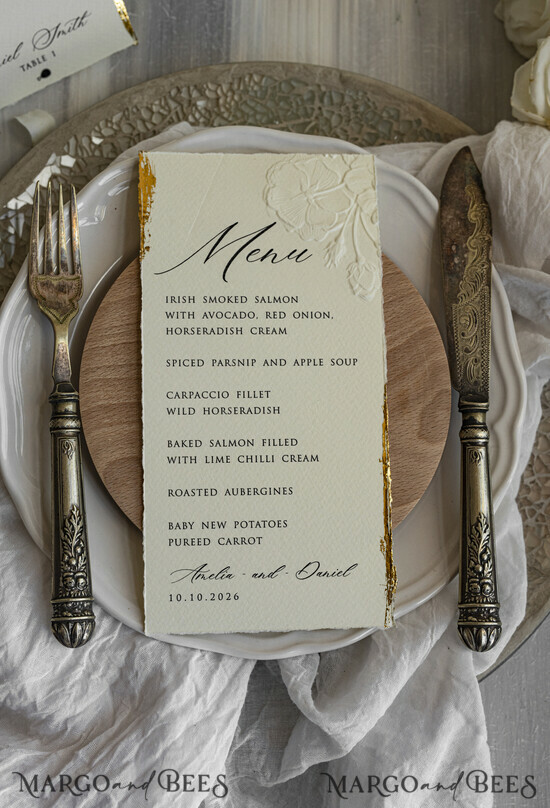 iel Smith
TABLE 1
Menu
IRISH SMOKED SALMON
WITH AVOCADO, RED ONION,
HORSERADISH CREAM
SPICED PARSNIP AND APPLE SOUP
CARPACCIO FILLET
WILD HORSERADISH
BAKED SALMON FILLED
WITH LIME CHILLI CREAM
ROASTED AUBERGINES
BABY NEW POTATOES
PUREED CARROT
Amelia - and - Daniel
10.10.2026
MARGO and BEES MARGO and BEES